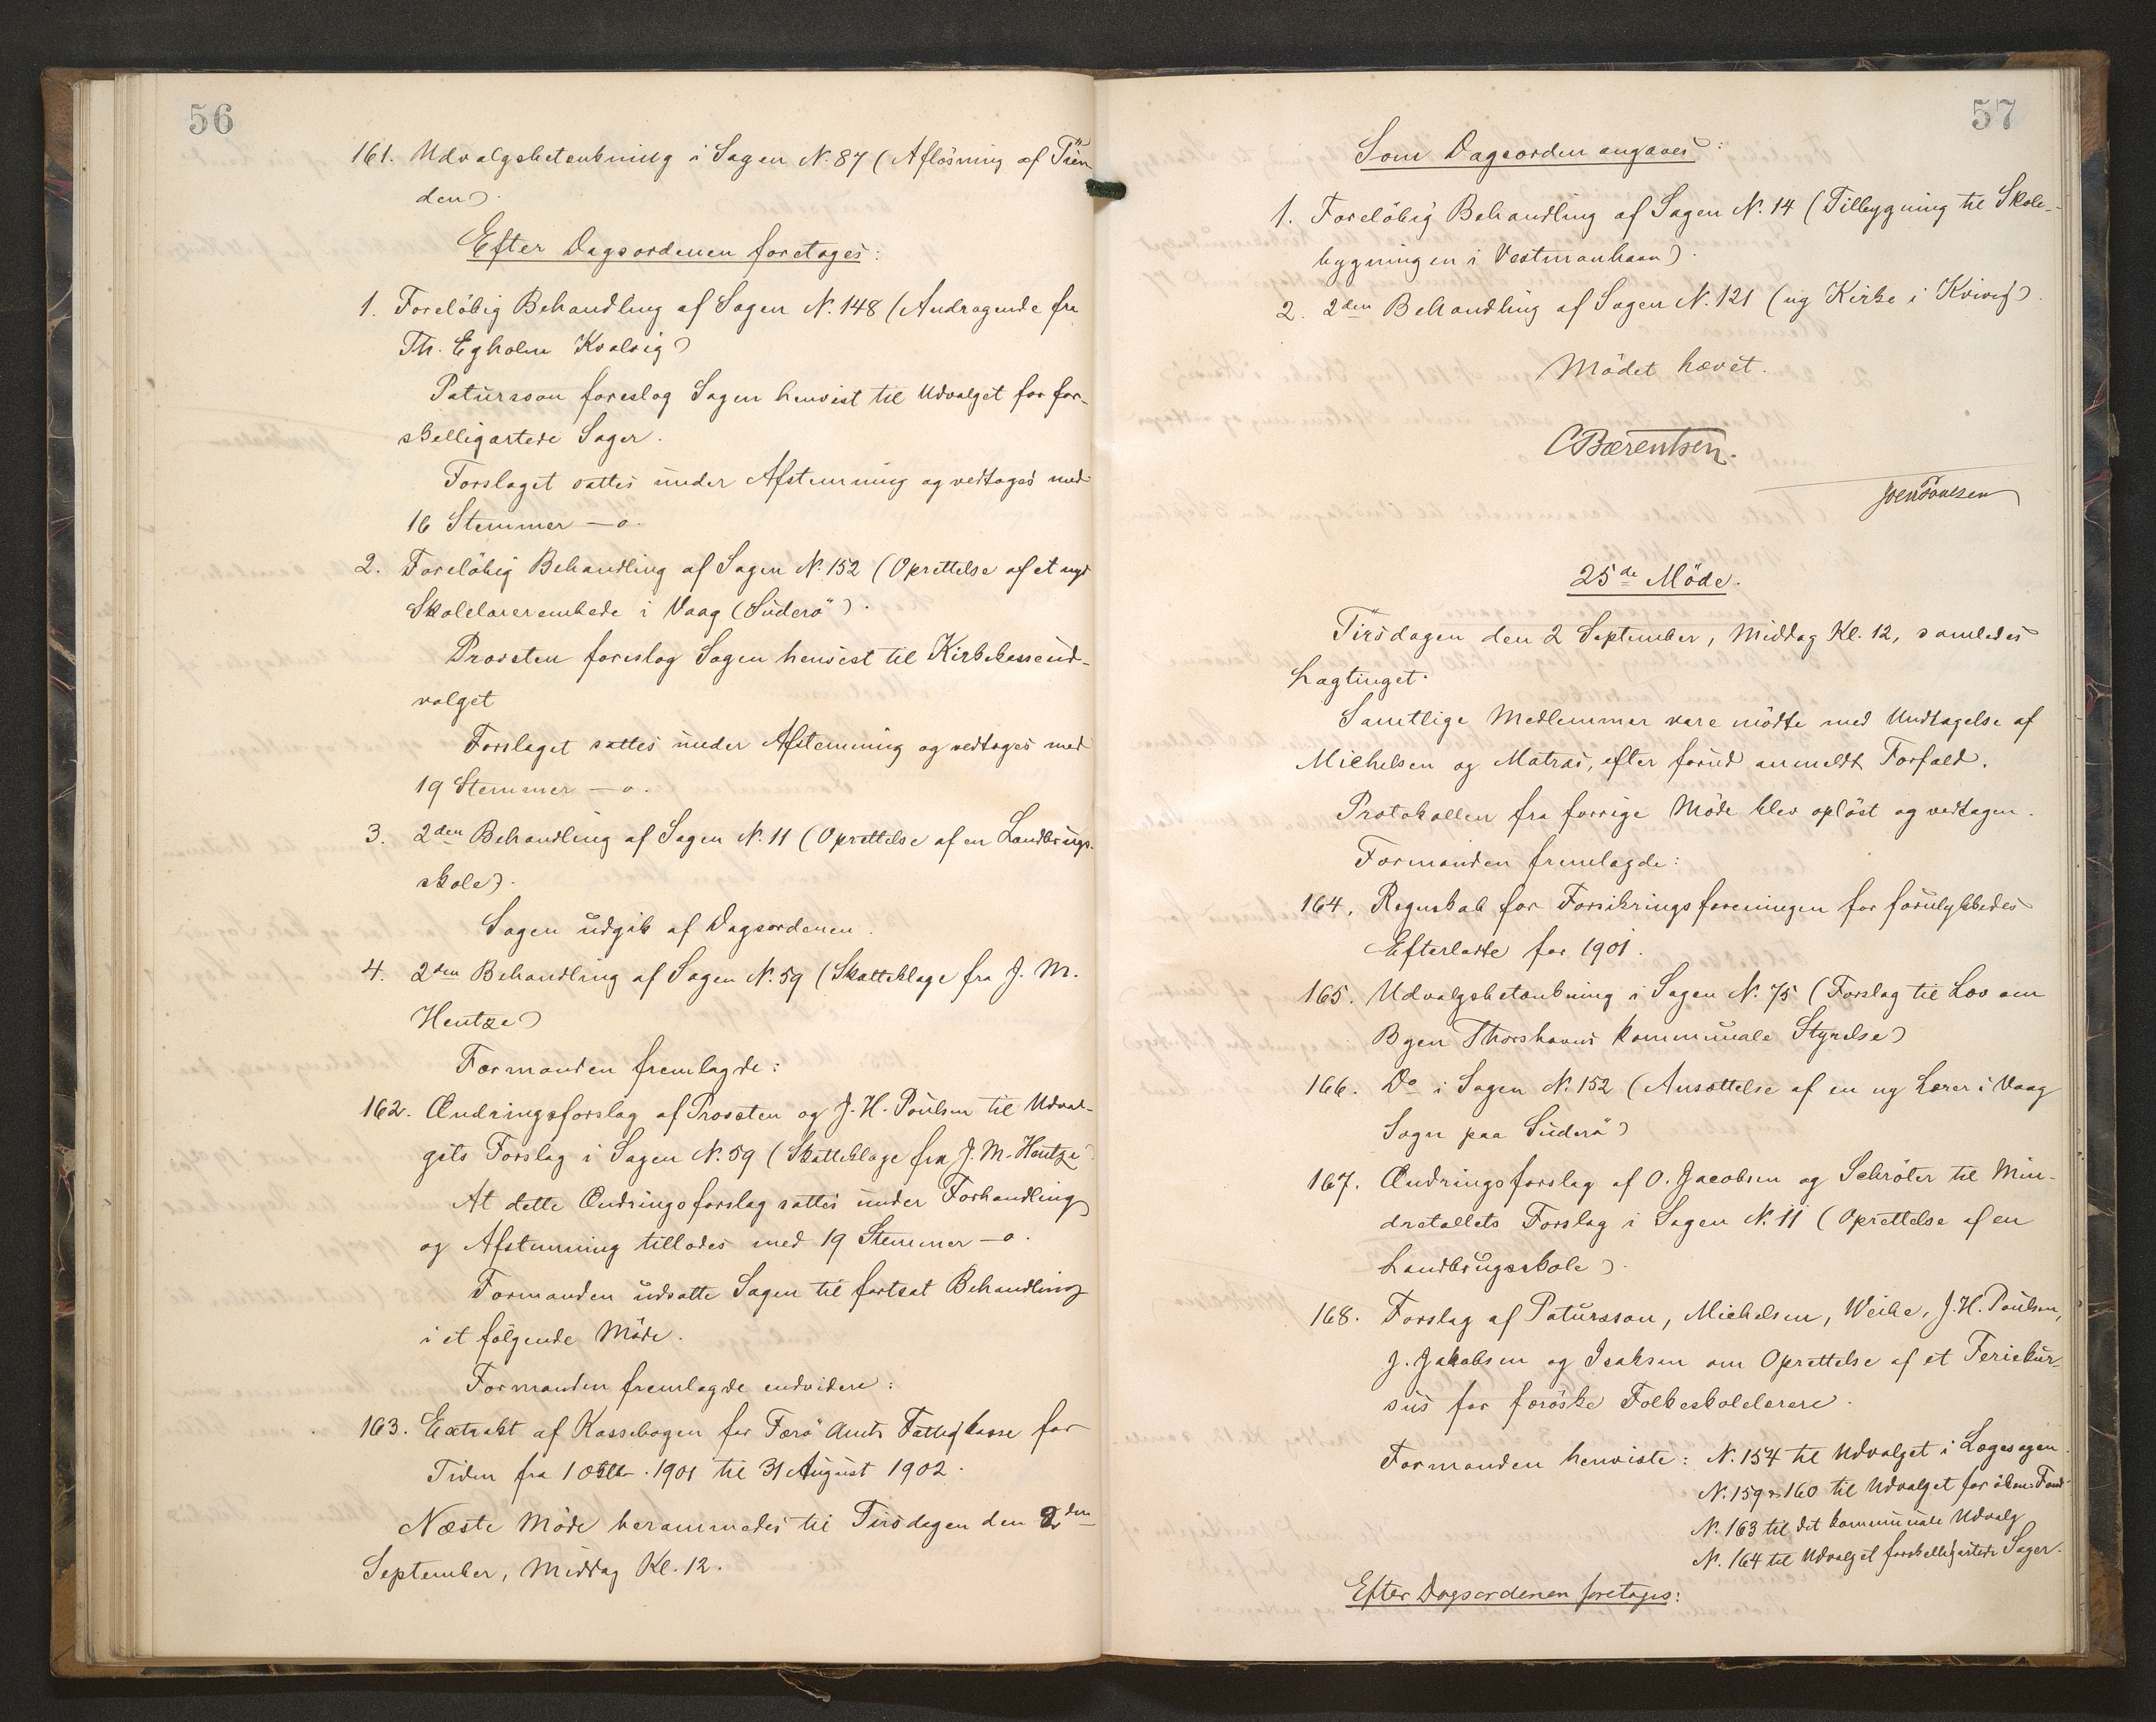 56
161. Udvalgsbetænkning i Sagen N. 87 (Aflösning af Tien
den).
Efter Dagsordenen foretoges:
1. Foreløbig Behandling af Sagen N. 148 (Andragende fra
Th. Egholm Kvalvig)
Patursson foreslog Sagen henvist til Udvalget for for-
skelligartede Sager.
Forslaget sattes under Afstemning og vedtoges med
16 Stemmer – o.
2. Foreløbig Behandling af Sagen N. 152 (Oprettelse af et nyt
Skolelærerembede i Vaag (Suderö).
Provsten foreslog Sagen henvist til Kirkekasseud-
valget
Forslaget sattes under Afstemning og vedtoges med
19 Stemmer – o.
3. 2den Behandling af Sagen N. 11 (Oprettelse af en Landbrugs-
skole).
Sagen udgik af Dagsordenen.
4. 2den Behandling af Sagen N. 59 (Skatteklage fra J. M.
Hentze)
Formanden fremlagde:
162. Ændringsforslag af Provsten og J. H. Poulsen til Udval-
gets Forslag i Sagen N. 59 (Skatteklage fra J. M. Hentze)
At dette Ændringsforslag sattes under Forhandling
og Afstemning tillodes med 19 Stemmer – o.
Formanden udsatte Sagen til fortsat Behandling
i et følgende Møde.
Formanden fremlagde endvidere:
163. Extrakt af Kassebogen for Færö Amts Fattigkasse for
Tiden fra 1 Oktbr. 1901 til 31 August 1902.
Næste Møde berammedes til Tirsdagen den 2den
September, Middag Kl. 12.
57
Som Dagsorden angaves:
1. Foreløbig Behandling af Sagen N. 14 (Tilbygning til Skole-
bygningen i Vestmanhavn).
2. 2den Behandling af Sagen N. 121 (ny Kirke i Kvivig).
Mödet hævet.
C Bærentsen.
Joen Poulsen
25de Möde.
Tirsdagen den 2 September, Middag Kl. 12, samledes
Lagtinget.
Samtlige Medlemmer vare mödte med Undtagelse af
Michelsen og Matras, efter forud anmeldt Forfald.
Protokollen fra forrige Möde blev oplöst og vedtagen.
Formanden fremlagde:
164. Regnskab for Forsikringsforeningen for forulykkedes
Efterladte for 1901.
165. Udvalgsbetænkning i Sagen N. 75 (Forslag til Lov om
Byen Thorshavns kommunale Styrelse)
166. Do i Sagen N. 152 (Ansættelse af en ny Lærer i Vaag
Sogn paa Suderö)
167. Ændringsforslag af O. Jacobsen og Schröter til Min-
dretallets Forslag i Sagen N. 11 (Oprettelse af en
Landbrugsskole).
168. Forslag af Patursson, Michelsen, Weihe, J. H. Poulsen,
J. Jakobsen og Isaksen om Oprettelse af et Feriekur-
sus for færöske Folkeskolelærere.
Formanden henviste: N. 154 til Udvalget i Lægesagen.
N. 159 & 160 til Udvalget for ökon. Fond
N. 163 til det kommunale Udvalg
N. 164 til Udvalget forskelligartede Sager.
Efter Dagsordenen foretoges: